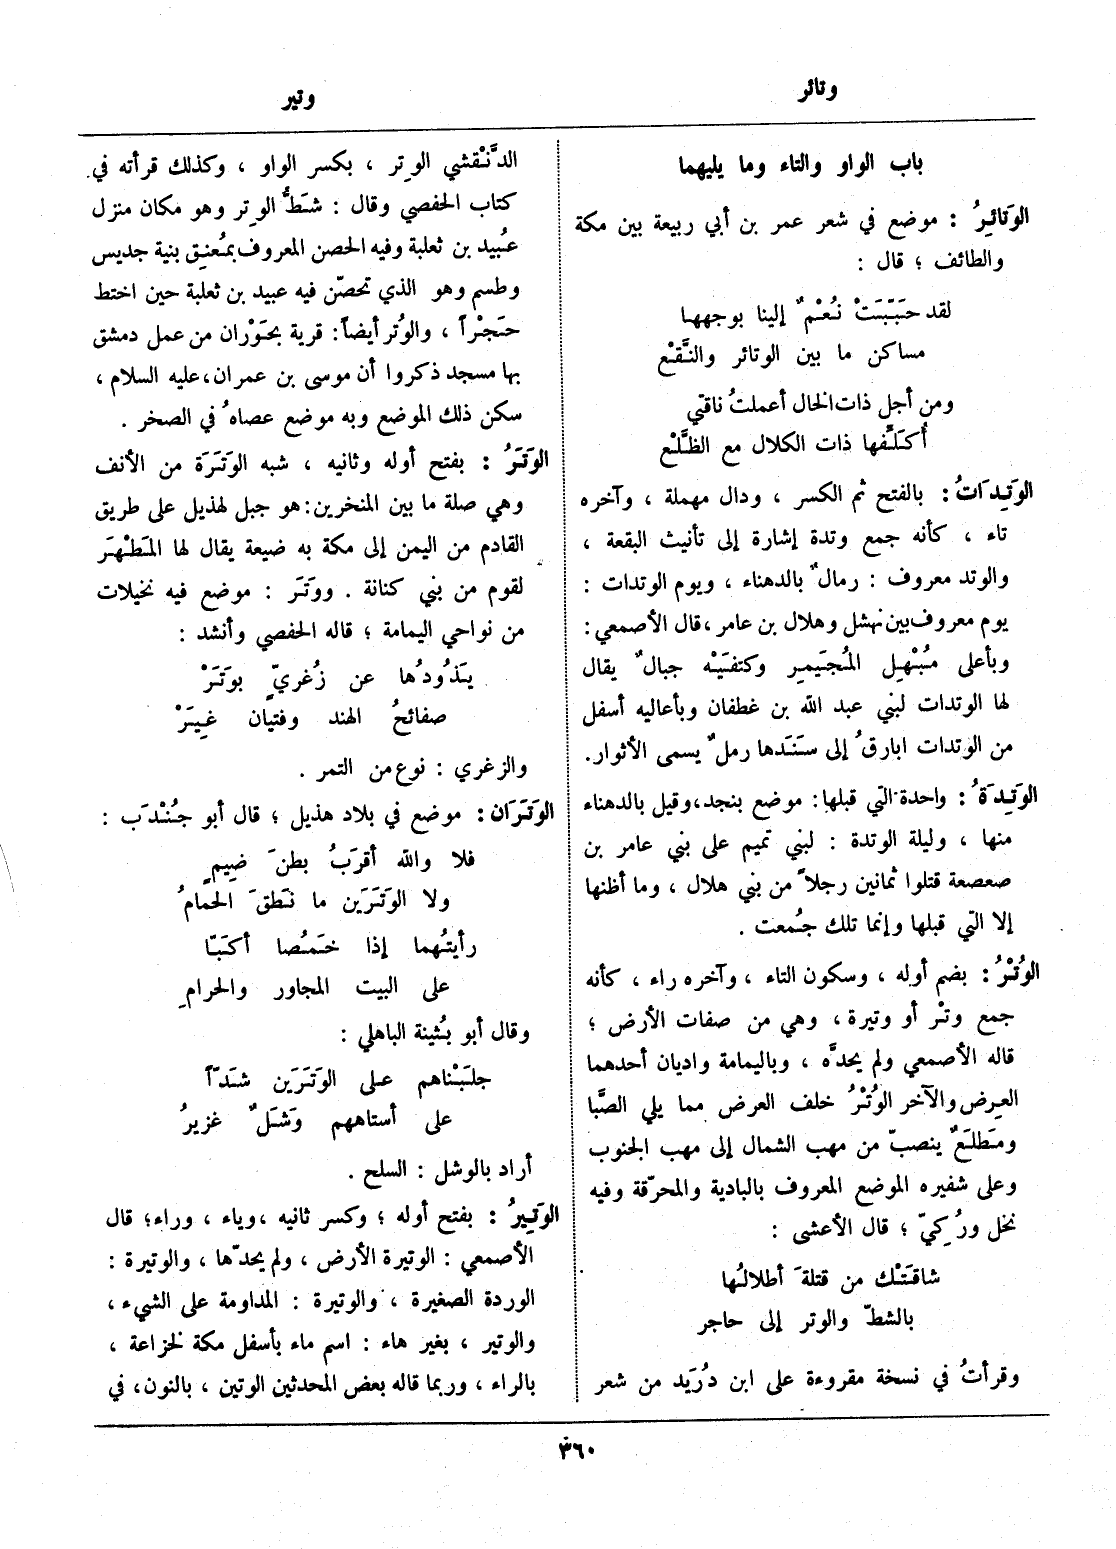 وتائر
وتير
باب الواو والتاء وما يليهما
الوَتائِرُ : موضع في شعر عمر بن أبي ربيعة بين مكة
والطائف ؛ قال :
لقد حَبَّبَتْ نُعْمٌ إلينا بوجهها
مساكن ما بين الوتائر والنَّقْعِ
ومن أجل ذات الخال أعملتُ ناقتي
أُكَلِّفها ذات الكلال مع الظَّلْعِ
الوَتِداتُ : بالفتح ثم الكسر ، ودال مهملة ، وآخره
تاء ، كأنه جمع وتدة إشارة إلى تأنيث البقعة ،
والوتد معروف : رمالٌ بالدهناء ، ويوم الوتدات :
يوم معروف بين نهشل وهلال بن عامر ، قال الأصمعي :
وبأعلى مُبْهِل المُجَيمِر وكتفَيْه جبالٌ يقال
لها الوتدات لبني عبد الله بن غطفان وبأعاليه أسفل
من الوتدات ابارقُ إلى سَنَدها رملٌ يسمى الأثوار.
الوَتِدَةُ : واحدة التي قبلها : موضع بنجد ، وقيل بالدهناء
منها ، وليلة الوتدة : لبني تميم على بني عامر بن
صعصعة قتلوا ثمانين رجلاً من بني هلال ، وما أظنها
إلا التي قبلها وإنما تلك جُمعت .
الوُتْرُ : بضم أوله ، وسكون التاء ، وآخره راء ، كأنه
جمع وتْر أو وتيرة ، وهي من صفات الأرض ؛
قاله الأصمعي ولم يحدَّه ، وباليمامة واديان أحدهما
العِرض والآخر الوُتْرُ خلف العرض مما يلي الصَّبا
ومَطلَعٌ ينصبّ من مهب الشمال إلى مهب الجنوب
وعلى شفيره الموضع المعروف بالبادية والمحرّقة وفيه
نخل ورُكيّ ؛ قال الأعشى :
شاقَتْك من قتلةَ أطلالُها
بالشطّ والوتر إلى حاجر
وقرأتُ في نسخة مقروءة على ابن دُرَيد من شعر
الدَّنْقشي الوِتر ، بكسر الواو ، وكذلك قرأته في
كتاب الحفصي وقال : شطُّ الوِتر وهو مكان منزل
عُبيد بن ثعلبة وفيه الحصن المعروف بمُعنِق بنية جديس
وطسم وهو الذي تحصّن فيه عبيد بن ثعلبة حين اختط
حَجْراً ، والوُتر أيضاً : قرية بحَوْران من عمل دمشق
بها مسجد ذكروا أن موسى بن عمران ، عليه السلام ،
سكن ذلك الموضع وبه موضع عصاهُ في الصخر .
الوَتَرُ : بفتح أوله وثانيه ، شبه الوَتَرَة من الأنف
وهي صلة ما بين المنخرين : هو جبل لهذيل على طريق
القادم من اليمن إلى مكة به ضيعة يقال لها المَطْهَر
لقوم من بني كنانة . ووتَر : موضع فيه نخيلات
من نواحي اليمامة ؛ قاله الحفصي وأنشد :
يَذُودُها عن زُغريٍّ بوَتَرْ
صفائحُ الهند وفتيان غِيَرْ
والزغري : نوع من التمر .
الوَتَرَان : موضع في بلاد هذيل ؛ قال أبو جُنْدَب :
فلا والله أقرَبُ بطنَ ضيمٍ
ولا الوَتَرَين ما نَطقَ الحمامُ
رأيتُهما إذا خَمُصا أكَبّا
على البيت المجاور والحرامِ
وقال أبو بُثينة الباهلي :
جلَبْناهم على الوَتَرَين شَدّاً
على أستاههم وَشَلٌ غزيرُ
أراد بالوشل : السلح .
الوَتِيرُ : بفتح أوله ؛ وكسر ثانيه ، وياء ، وراء ؛ قال
الأصمعي : الوتيرة الأرض ، ولم يحدّها ، والوتيرة :
الوردة الصغيرة ، والوتيرة : المداومة على الشيء ،
والوتير ، بغير هاء : اسم ماء بأسفل مكة لخزاعة ،
بالراء ، وربما قاله بعض المحدثين الوتين ، بالنون ، في
٣٦٠